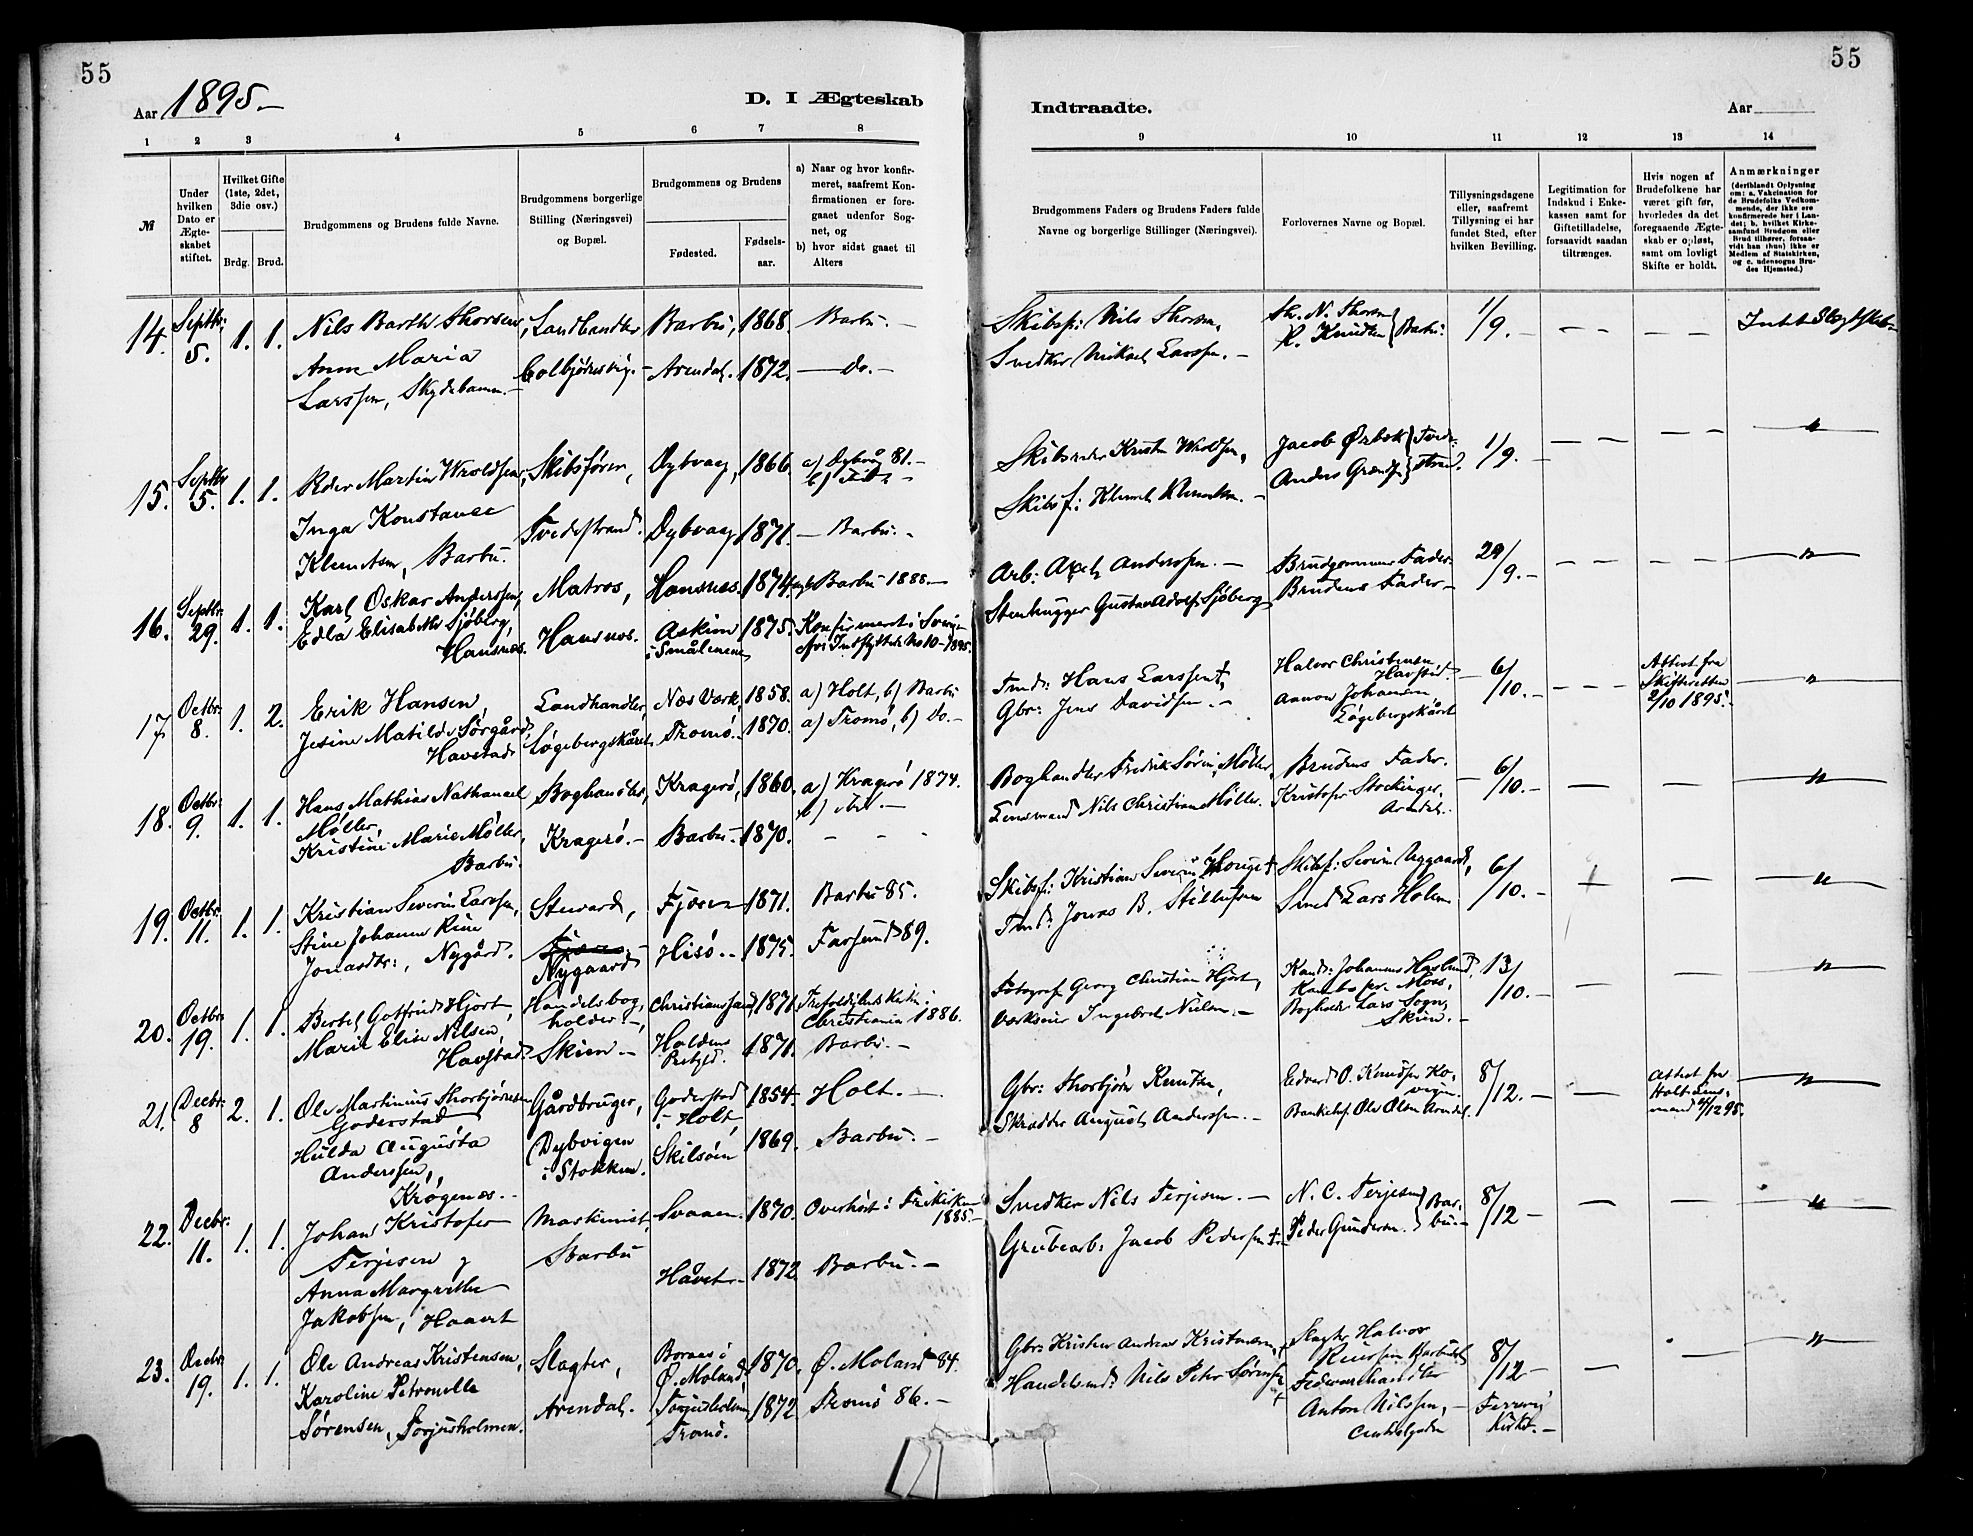 55
55
Aar 1895.—
D. I Ægteskab
Indtraadte.
Aar
1 2 3 4 5 6 7 8 9 10 11 12 13 14
№
Under hvilken Dato er Ægteskabet stiftet.
Hvilket Gifte (1ste, 2det, 3die osv.)
Brdg. Brud.
Brudgommens og Brudens fulde Navne.
Brudgommens borgerlige Stilling (Næringsvei) og Bopæl.
Brudgommens og Brudens
Fødested.
Fødselsaar.
a) Naar og hvor konfirmeret, saafremt Konfirmationen er foregaaet udenfor Sognet, og
b) hvor sidst gaaet til Alters
Brudgommens Faders og Brudens Faders fulde Navne og borgerlige Stillinger (Næringsvei).
Forlovernes Navne og Bopæl.
Tillysningsdagene eller, saafremt Tillysning ei har fundet Sted, efter hvilken Bevilling.
Legitimation for Indskud i Enkekassen samt for Giftetilladelse, forsaavidt saadan tiltrænges.
Hvis nogen af Brudefolkene har været gift før, hvorledes da det foregaaende Ægteskab er opløst, samt om lovligt Skifte er holdt.
Anmærkninger
(deriblandt Oplysning om: a. Vakcination for de Brudefolks Vedkommende, der ikke ere konfirmerede her i Landet; b. hvilket Kirkesamfund Brudgom eller Brud tilhører, forsaavidt han (hun) ikke er Medlem af Statskirken, og c. udensogns Brudes Hjemsted.)
14. Septbr: 5. 1. 1. Nils Barth Thorsen, Landhandler, Barbu, 1868. Barbu.— Skibsf: Nils Thorsen, Th. N. Thorsen K. Knudsen } Barbu: 1/9.—
Anne Maria Larssen, Skydebanen.— Colbjørnsvig.— Arendal. 1872. —Do.— Snedker Mikael Larssen.—
15. Septbr 5. 1. 1. Peder Martin Wroldsen, Skibsfører, Dybvaag, 1866. a) Dybvåg 81.— Skibsreder Kristen Wroldsen, Jacob Ørbek 1/9.—
Inga Konstance Klemetsen, Barbu. Tvedestrand. Dybvaag 1871. —Barbu.— Skibsf: Klemet Klemetsen.—
16. Septbr: 29. 1. 1. Karl Oskar Anderssen, Matros, Hansnes 1874. Barbu 1888.— Arb: Axel Anderssen.— Brudgommens Fader— 29/9.—
Edla Elisabeth Sjöberg, Hansnes. Hansnes. Askim i Smålenene 1875. Konfirmert i Sverige Indflyttede No 10—1895. Stenhugger Gustav Adolf Sjöberg Brudens Fader—
17. Octbr: 8. 1. 2. Erik Hansen, Landhandler, Næs Værk, 1858. a) Holt, b) Barbu Tmd: Hans Larssen †, Halvor Christensen Havstad. 6/10.— Attest fra Skifteretten 2/10 1895.
Jesine Matilde Sørgård, Havstad Løgebergskåret Tromø. 1870. a) Tromø, b) Do.— Gbr: Jens Davidsen.— Johansen Løgebergskåret
18. Octbr: 9. 1. 1. Hans Mathias Nathanael Møller, Boghandler, Kragerø, 1860. a) Kragerø 1874. Boghandler Fredrik Sørin Møller, Brudens Fader. 6/10.—
Kristine Marie Møller, Barbu. Kragerø.— Barbu.— 1870. Lensmand Nils Christian Møller. Kristofer Stockinger, Arendal.
19. Octbr: 11. 1. 1. Kristian Severin Larssen, Steward, Fjæren 1871. Barbu 85. Skibsf: Kristian Severin † Skibsf: Severin Nygaard, 6/10.—
Stine Johanne Rine Jonasdtr:, Nygård. Nygaard Hisø.. 1875. Farsund 89. Tmd: Jonas B. Smed Lars Holm
20. Octbr: 19. 1. 1. Bertel Gotfried Hjort, Handelsbogholder.—, Christianssand, 1871. Trefoldigheds Kirke i Christiania 1886. Fotograf Georg Christian Hjort, Kand: Johannes Haslund, Kambo pr. Moss, 13/10.—
Marie Elise Nilsen, Havstad. Skien.— Holdens Prstgd. 1871. Barbu.— Værkseier Ingebret Nielsen.— Bogholder Lars Sogn, Skien.—
21. Decbr: 8 2. 1. Ole Martinius Thorbjörnsen Goderstad Gårdbruger, Goderstad i Holt, 1854. Holt.— Gbr: Thorbjörn Knutsen, Edvard O. Knudsen 8/12.— Attest fra Holt Lensmand 4/12 95.
Hulda Augusta Anderssen, Krøgenes.. Dybvigen i Stokken. Skilsøen 1869. Barbu.— Skrædder August Anderssen.— Ole Olsen Arendal.
22. Decbr: 11. 1. 1. Johan Kristofer Terjesen og Maskinist, Svaaen. 1870. Overhørt i Frikirken 1885.— Snedker Nils Terjesen.— N. C. Terjesen } Barbu.— 8/12—
Anna Margrethe Jakobsen, Haavet Barbu Håvet— 1872. Barbu.— Grubearb: Jacob Pedersen †— Peder Gundersen.
23. Decbr: 19. 1. 1. Ole Andreas Kristensen, Slagter, Bornes i Ø. Moland, 1870. Ø. Moland 84. Gbr: Kristen Andreas Kristensen, † Slagter Halvor 8/12—
Karoline Petronelle Sørensen, Torjusholmen. Arendal. Torjusholmen, Tromø. 1872 Tromø 86.— Handelsmd: Nils Peter Sørensen † Anton Nilssen,— Kirke.—